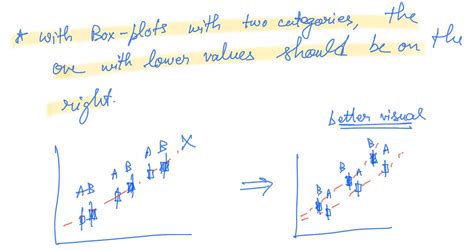 * with Box-plots with two categories, the
one with lower values should be on the
right.
better visual
A B A B A B X
B A B A B A